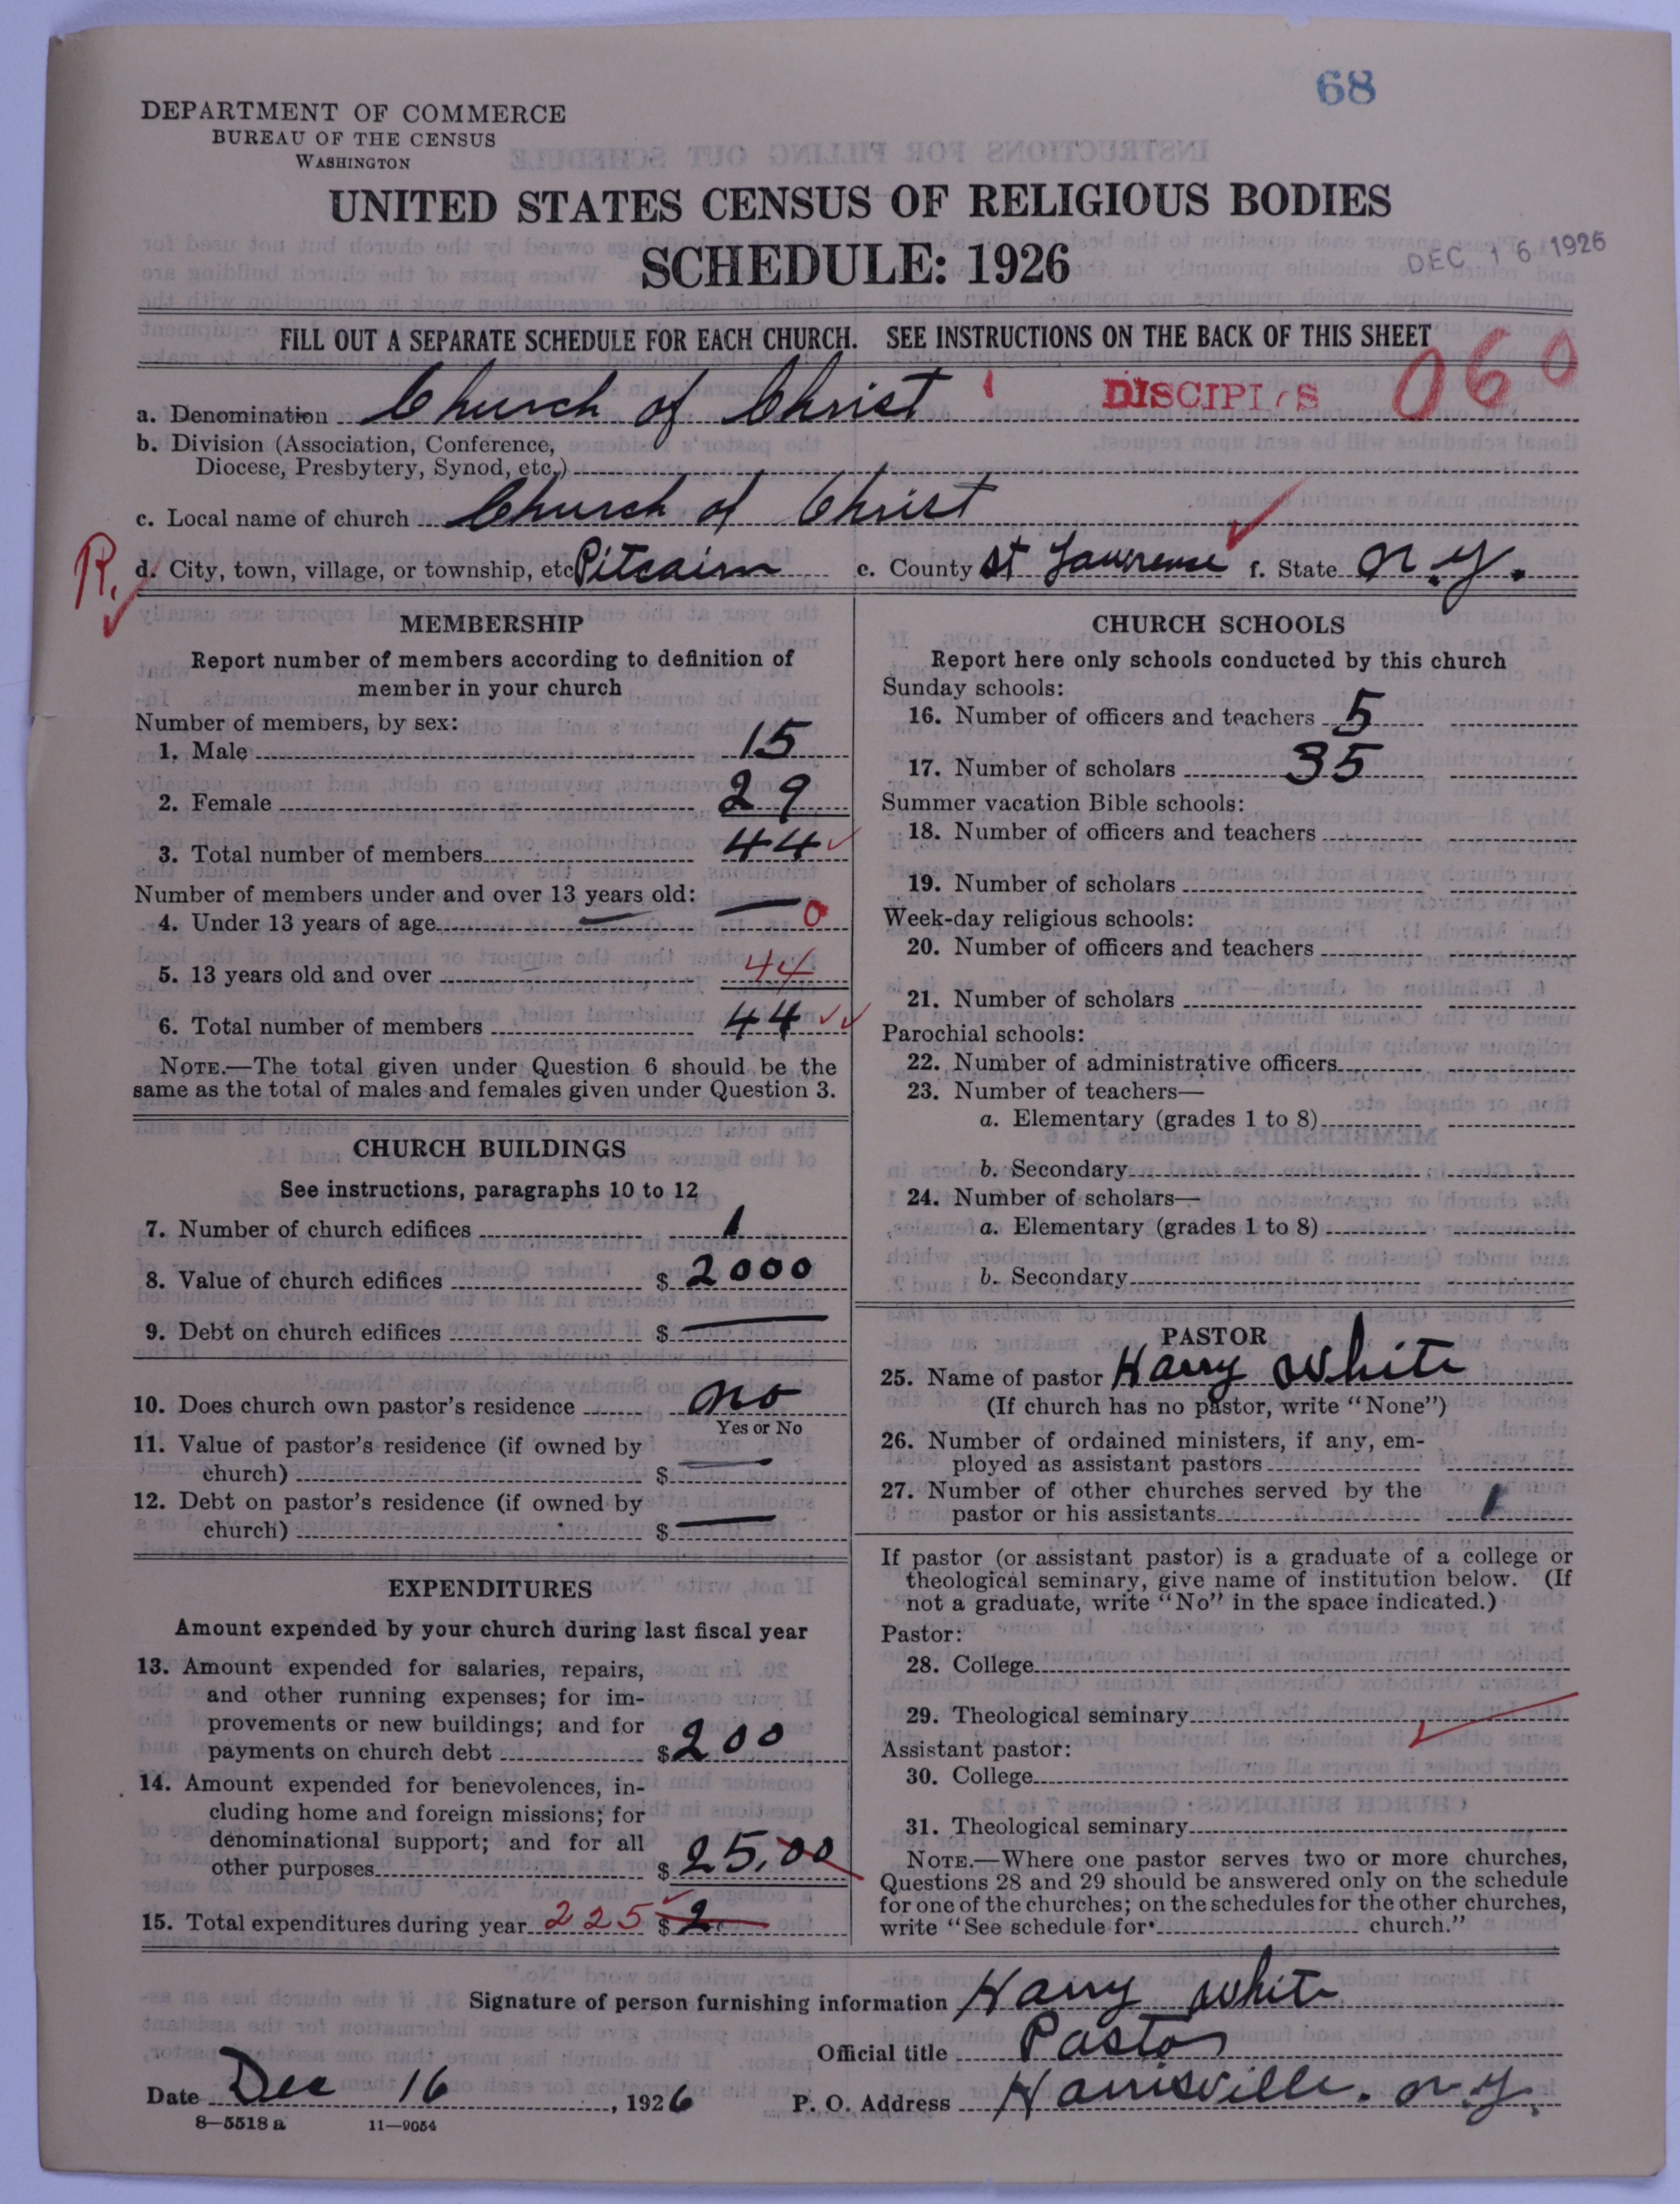 68
DEPARTMENT OF COMMERCE
BUREAU OF THE CENSUS
WASHINGTON
UNITED STATES CENSUS OF RELIGIOUS BODIES
SCHEDULE: 1926
DEC 16 1926
FILL OUT A SEPARATE SCHEDULE FOR EACH CHURCH. SEE INSTRUCTIONS ON THE BACK OF THIS SHEET
a. Denomination Church of Christ DISCIPLES 060
b. Division (Association, Conference,
Diocese, Presbytery, Synod, etc.)
c. Local name of church Church of Christ
R. d. City, town, village, or township, etc Pitcairn e. County St Lawrence f. State N.Y.
MEMBERSHIP
Report number of members according to definition of
member in your church
Number of members, by sex:
1. Male 15
2. Female 29
3. Total number of members 44
Number of members under and over 13 years old:
4. Under 13 years of age — 0
5. 13 years old and over 44
6. Total number of members 44
NOTE.—The total given under Question 6 should be the
same as the total of males and females given under Question 3.
CHURCH BUILDINGS
See instructions, paragraphs 10 to 12
7. Number of church edifices 1
8. Value of church edifices $ 2000
9. Debt on church edifices $ —
10. Does church own pastor's residence No
Yes or No
11. Value of pastor's residence (if owned by
church) $ —
12. Debt on pastor's residence (if owned by
church) $ —
EXPENDITURES
Amount expended by your church during last fiscal year
13. Amount expended for salaries, repairs,
and other running expenses; for im-
provements or new buildings; and for
payments on church debt $ 200
14. Amount expended for benevolences, in-
cluding home and foreign missions; for
denominational support; and for all
other purposes $ 25.00
15. Total expenditures during year 225 $ 2
CHURCH SCHOOLS
Report here only schools conducted by this church
Sunday schools:
16. Number of officers and teachers 5
17. Number of scholars 35
Summer vacation Bible schools:
18. Number of officers and teachers
19. Number of scholars
Week-day religious schools:
20. Number of officers and teachers
21. Number of scholars
Parochial schools:
22. Number of administrative officers
23. Number of teachers—
a. Elementary (grades 1 to 8)
b. Secondary
24. Number of scholars—
a. Elementary (grades 1 to 8)
b. Secondary
PASTOR
25. Name of pastor Harry White
(If church has no pastor, write "None")
26. Number of ordained ministers, if any, em-
ployed as assistant pastors
27. Number of other churches served by the
pastor or his assistants 1
If pastor (or assistant pastor) is a graduate of a college or
theological seminary, give name of institution below. (If
not a graduate, write "No" in the space indicated.)
Pastor:
28. College
29. Theological seminary
Assistant pastor:
30. College
31. Theological seminary
NOTE.—Where one pastor serves two or more churches,
Questions 28 and 29 should be answered only on the schedule
for one of the churches; on the schedules for the other churches,
write "See schedule for church."
Signature of person furnishing information Harry White
Official title Pastor
Date Dec 16, 1926 P. O. Address Harrisville. N.Y.
8—5518 a 11—9054